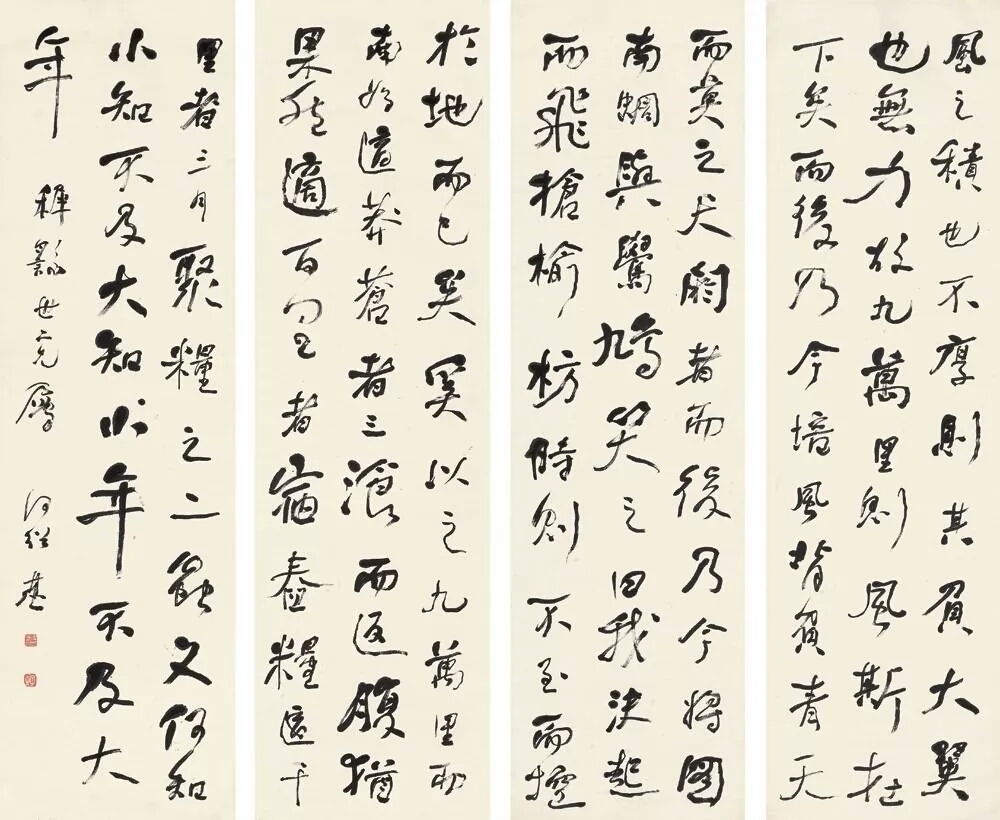 風之積也不厚則其負大翼
也無力故九萬里則風斯在
下矣而後乃今培風背負青天
而莫之夭閼者而後乃今將圖
南蜩與鷽鳩笑之曰我決起
而飛槍榆枋時則不至而控
於地而已矣奚以之九萬里而
南為適莽蒼者三湌而返腹猶
果然適百里者宿舂糧適千
里者三月聚糧之二蟲又何知
小知不及大知小年不及大
年
世兄屬 何紹基